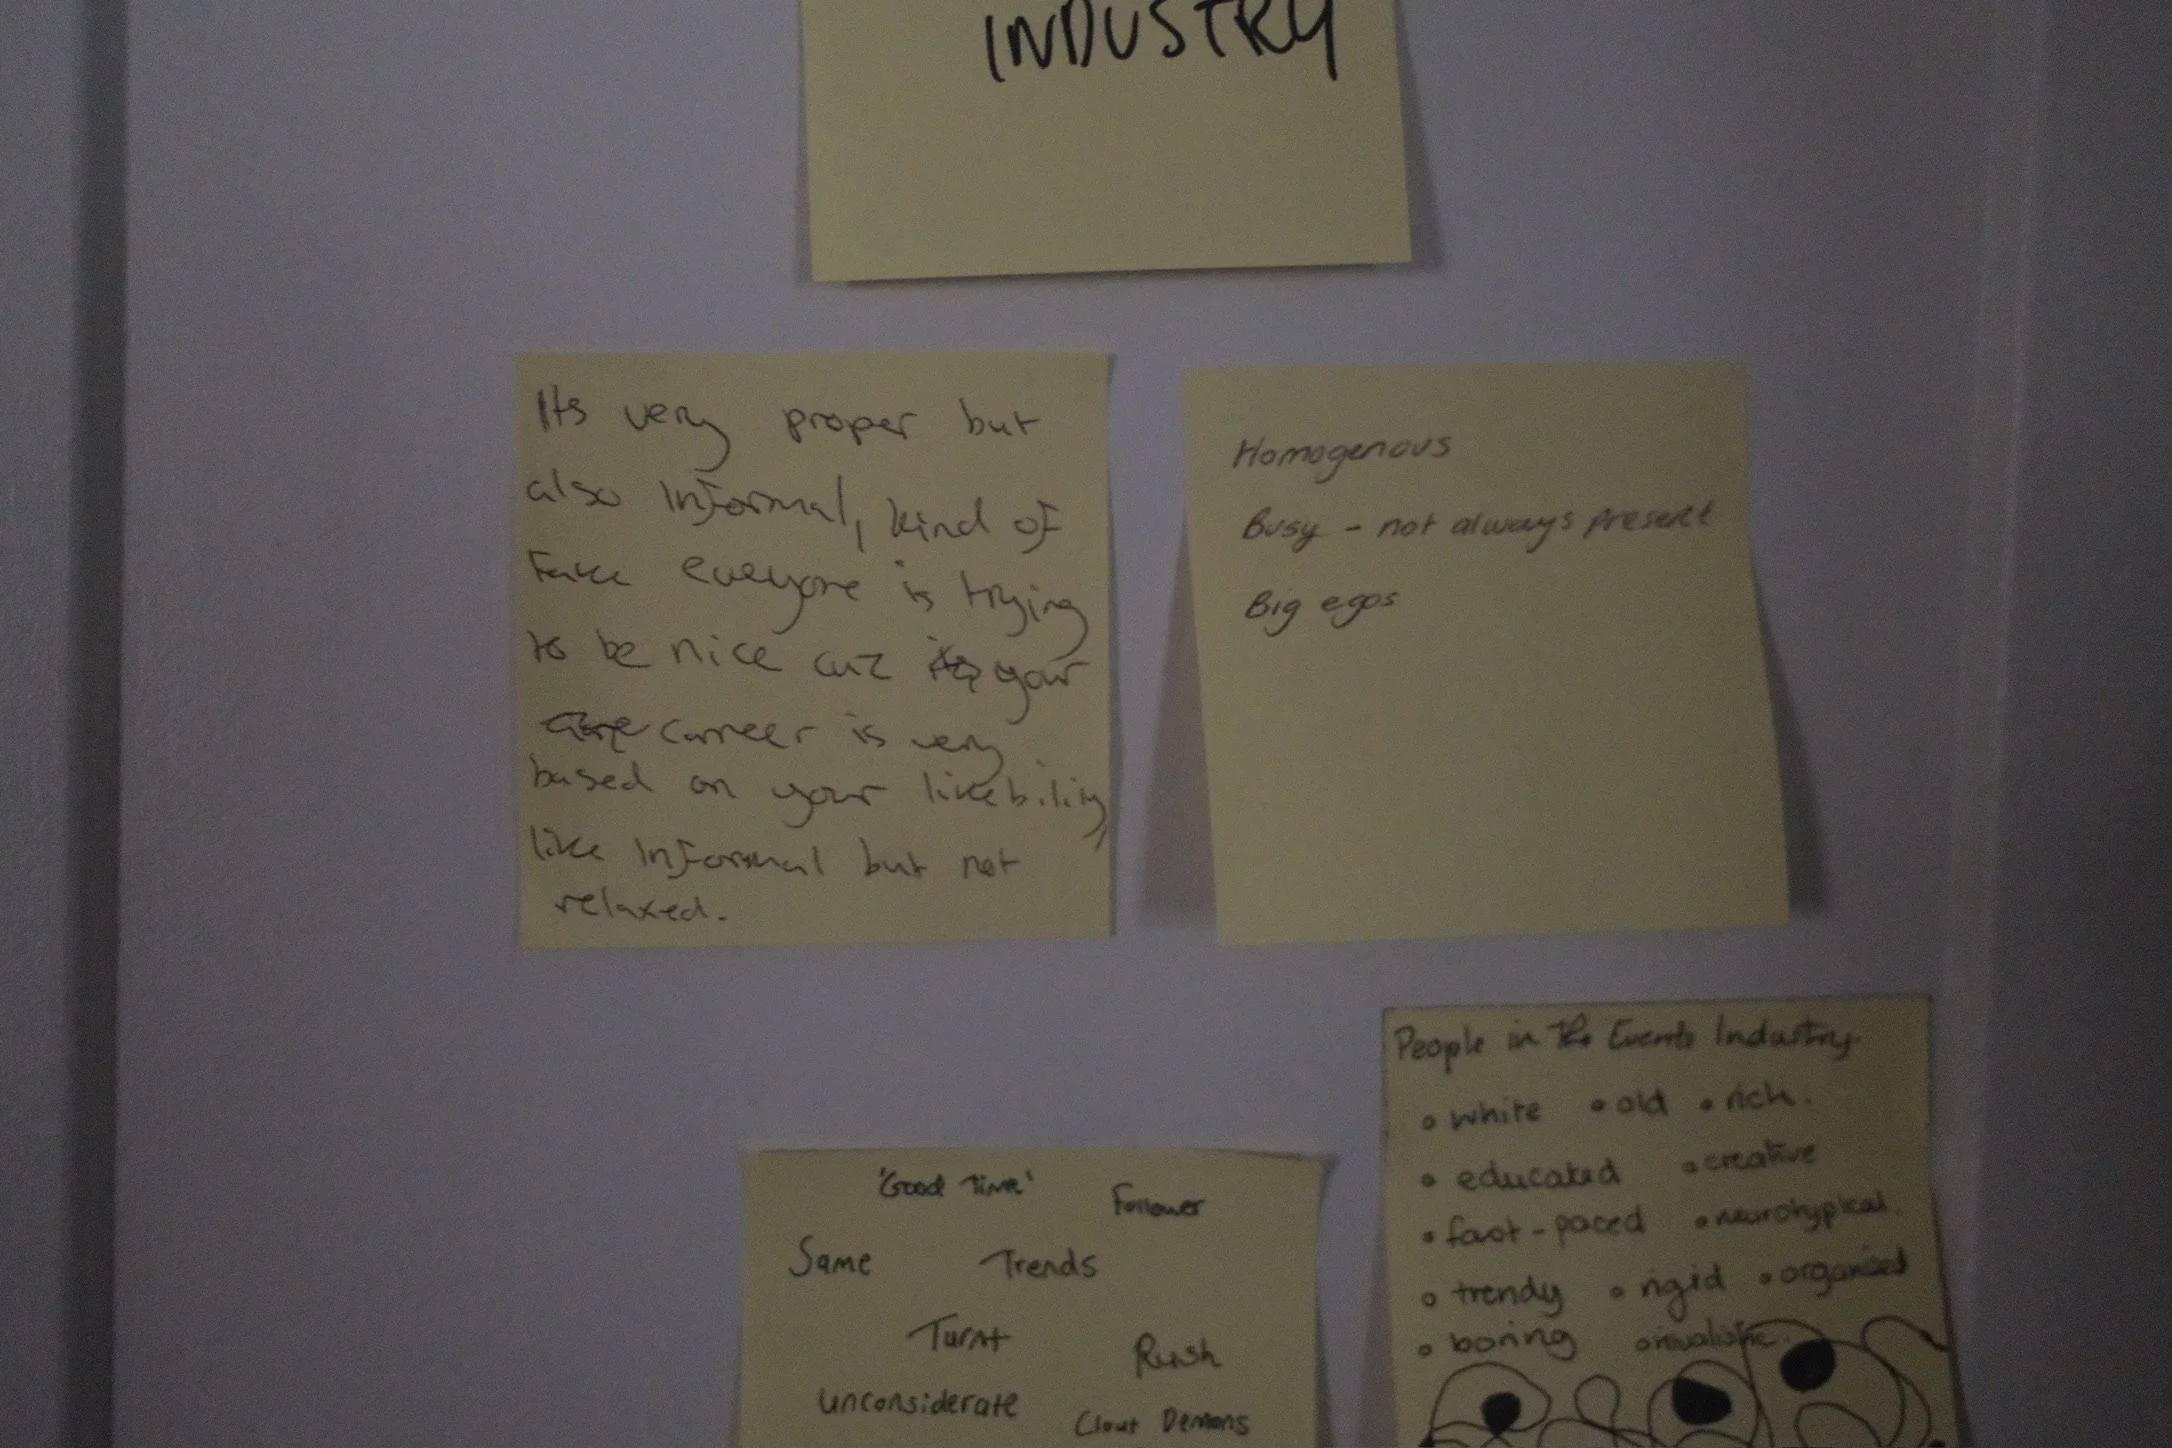 INDUSTRY
Its very proper but
also informal, kind of
fake everyone is trying
to be nice cuz your
career is very
based on your likebility,
like informal but not
relaxed.
Homogenous
Busy - not always present
Big egos
People in the Events Industry
white • old • rich.
educated • creative
fast-paced • neurotypical.
trendy • rigid • organised
boring
'Good Time' Follower
Same Trends
Turnt Rush
unconsiderate Clout Demons